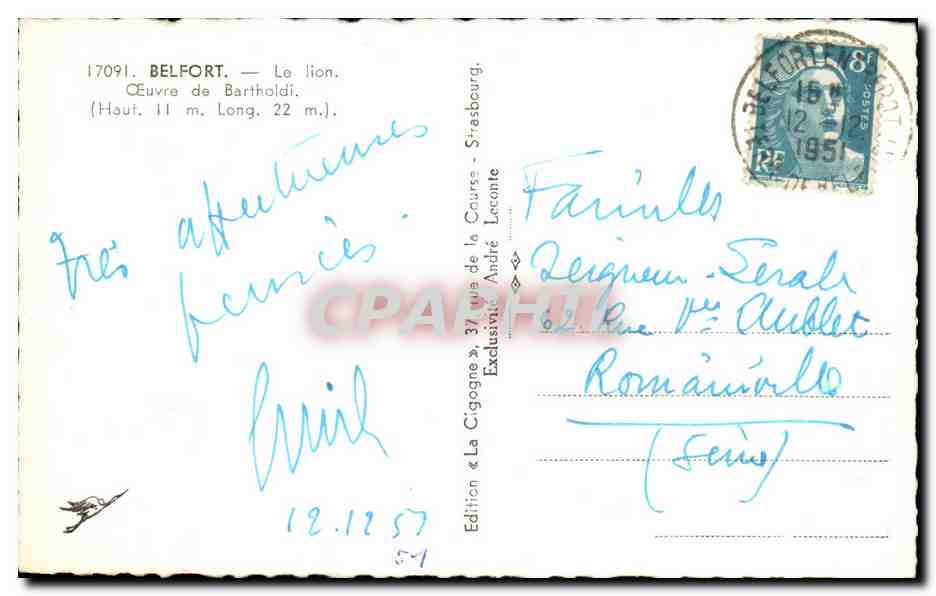 17091. BELFORT. — Le lion.
Œuvre de Bartholdi.
(Haut. 11 m. Long. 22 m.).
Très affectueuses
pensées.
Emile
12.12 51
51
Edition « La Cigogne », 37, rue de la Course - Strasbourg.
Exclusivité André Leconte
8f
POSTES
RF
BELFORT
15
12 - 12
1951
Familles
Seigneur - Gérale
62. Rue Vve Aublet
Romainville
(Seine)
CPAPHIL